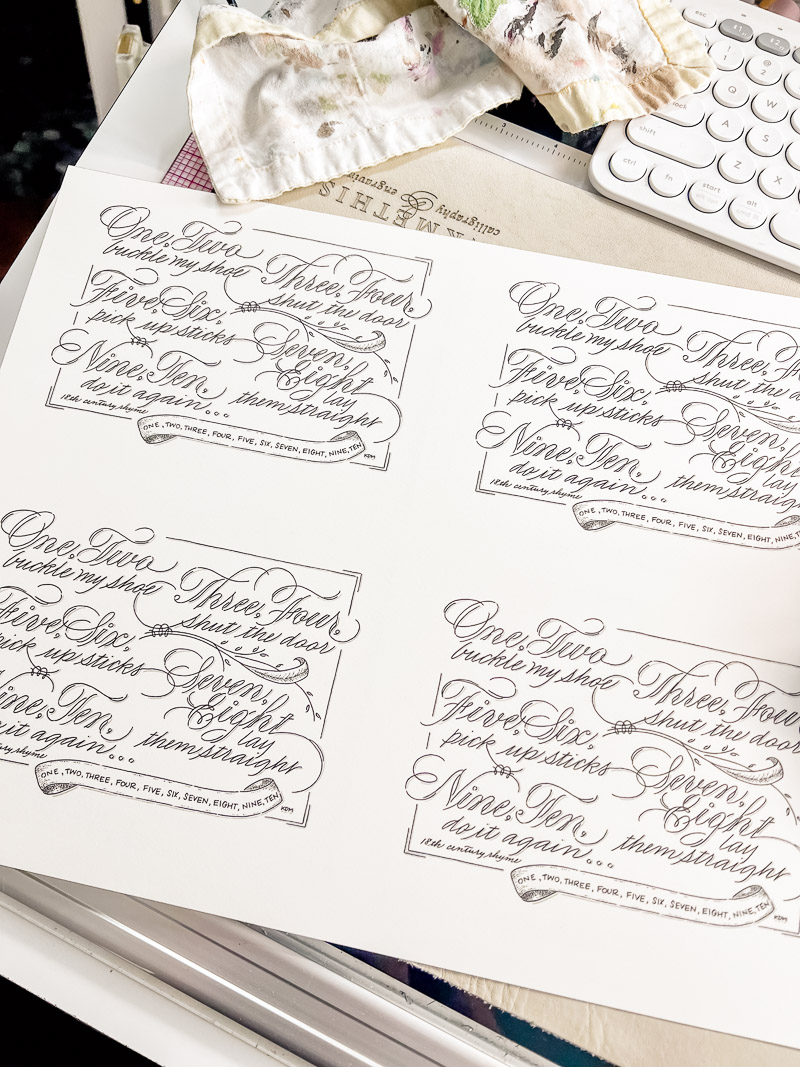 esc
!
1
@
2
Q
W
lock
A
S
shift
Z
X
ctrl
fn
start
alt
3
4
METHIS
calligraphy engraving
One, Two
buckle my shoe
Three, Four,
shut the door
Five, Six,
pick up sticks
Seven,
Eight
lay
them straight
Nine, Ten,
do it again...
18th century rhyme
ONE, TWO, THREE, FOUR, FIVE, SIX, SEVEN, EIGHT, NINE, TEN
KDM
One, Two
buckle my shoe
Three, Fou
shut the d
Five, Six,
pick up sticks
Seven,
Eight
lay
them straigh
Nine, Ten,
do it again...
18th century rhyme
ONE, TWO, THREE, FOUR, FIVE, SIX, SEVEN, EIGHT, NINE, T
One, Two
buckle my shoe
Three, Four,
shut the door
Five, Six,
pick up sticks
Seven,
Eight
lay
them straight
ine, Ten,
it again...
century rhyme
ONE, TWO, THREE, FOUR, FIVE, SIX, SEVEN, EIGHT, NINE, TEN
KDM
One, Two
buckle my shoe
Three, Four
shut the door
Five, Six,
pick up sticks
Seven,
Eight
lay
them straight
Nine, Ten,
do it again...
18th century rhyme
ONE, TWO, THREE, FOUR, FIVE, SIX, SEVEN, EIGHT, NINE, TEN
KDM